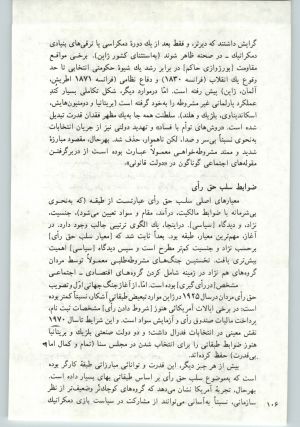 گرایش داشتند که دیرتر، و فقط بعد از یك دورهٔ دمکراسی یا ترقی‌های بنیادی
دمکراتیك ـ در صحنه ظاهر شوند (به‌استثنای کشور ژاپن). برخی مواقع
مقاومت [بورژوازی حاکم] در برابر رشد یك شیوهٔ حکومتی انتخابی تا حد
وقوع یك انقلاب (فرانسه ۱۸۳۰) و دفاع نظامی (فرانسه ۱۸۷۱ اطریش،
آلمان، ژاپن) پیش رفته است. امّا درموارد دیگر، شکل تکاملی بسیار کندِ
عملکرد پارلمانی غیر مشروطه را به‌خود گرفته است (بریتانیا و دومنیون‌هایش،
اسکاندیناوی، بلژیك و هلند). سلطنت همه جا به‌یك مظهر فقدان قدرت تبدیل
شده است. و روش‌های توأم با فساد و تهدید دولتی نیز از جریان انتخابات
به‌نحوی نسبتاً بی‌سر و صدا، لکن ناهموار، حذف شد. بهرحال، مقصود مبارزهٔ
شدید و ممتد مشروطه‌خواهی معمولاً عبارت بوده است از دربرگرفتن
مقوله‌های اجتماعی گوناگون در «دولت قانونی».
ضوابط سلب حق رأی
معیارهای اصلی سلب حق رأی عبارتست از طبقه (که به‌نحوی
بی‌شرمانه با ضوابط مالکیت، درآمد، مقام و سواد تعیین می‌شود)، جنسیت،
نژاد، و دیدگاه [سیاسی]. دراینجا، یك الگوی ترتیبی جالب وجود دارد. در
آغاز، مهم‌ترین معیار، طبقه بود. بعداً ثابت شد که [معیار سلب حق رأی]
برحسب نژاد و جنسیت کم‌تر مطرح است و سپس دیدگاه [سیاسی] اهمیت
بیش‌تری یافت. نخستین جنگ‌های مشروطه‌طلبی معمولاً توسط مردان
گروه‌های هم نژاد در زمینه شامل کردن گروه‌های اقتصادی ـ اجتماعی
مشخص [در رأی گیری] بوده است. امّا، از آغاز جنگ جهانی اوّل و تصویب
حق رأی مردان درسال ۱۹۲۵ در ژاپن موارد تبعیض طبقاتی آشکار، نسبتاً کمتر بوده
است: در برخی ایالات آمریکائی هنوز [شروط دادن رأی] مشخصات ثبت نام،
پرداخت مالیات صندوق رأی و آزمایش سواد است. و این ضوابط تا سال ۱۹۷۰
نقش معینی در انتخابات فدرال داشتند؛ و دو دولت صنعتی بلژیك و بریتانیا
هنوز ضوابط طبقاتی را برای انتخاب شدن در مجلس سنا (تمام و کمال اما
بی‌قدرت) حفظ کرده‌اند.
بیش از هر چیز دیگر، این قدرت و توانائی مبارزاتی طبقهٔ کارگر بوده
است که به‌موضوع سلب حق رأی بر اساس طبقاتی بهای بسیار داده است.
بهرحال، تجربهٔ آمریکا نشان می‌دهد که گروه‌های کوچك‌تر وضعیف‌تر از نظر
سازمانی، نسبتاً به‌آسانی می‌توانند از مشارکت در سیاست بازی دمکراتیك
۱۰۶